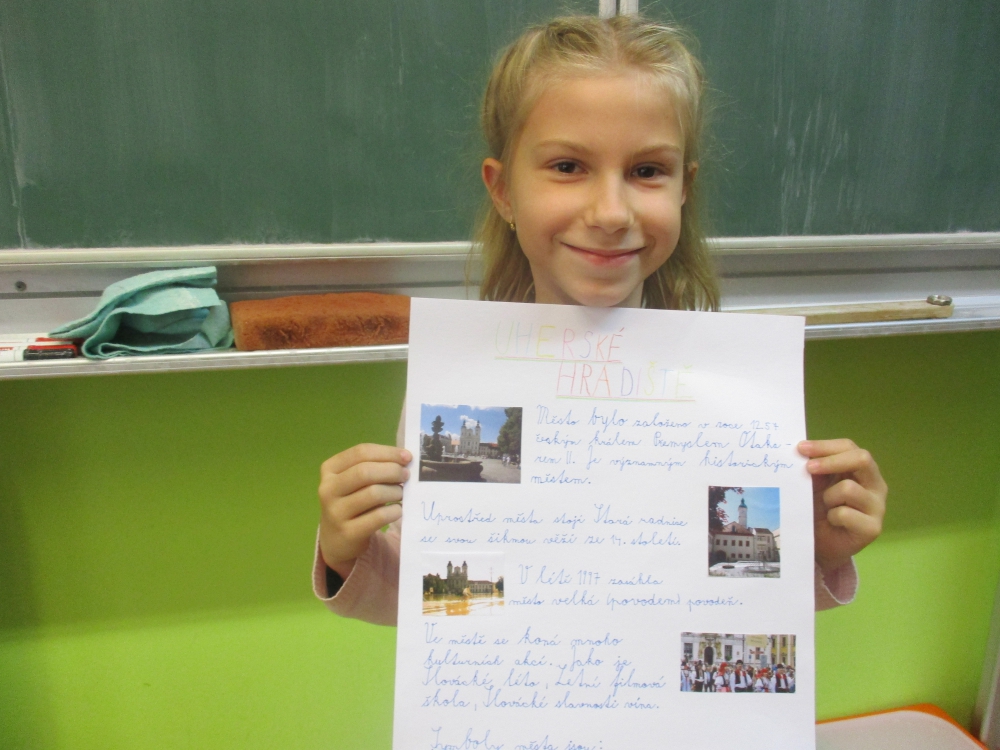 UHERSKÉ
HRADIŠTĚ
Město bylo založeno v roce 1257
českým králem Přemyslem Otaka-
rem II. Je významným historickým
městem.
Uprostřed města stojí Stará radnice
se svou šikmou věží ze 17. století.
V létě 1997 zasáhla
město velká (povodem) povodeň.
Ve městě se koná mnoho
kulturních akcí. Jako je
Slovácké léto, Letní filmová
škola, Slovácké slavnosti vína.
Symboly města jsou: